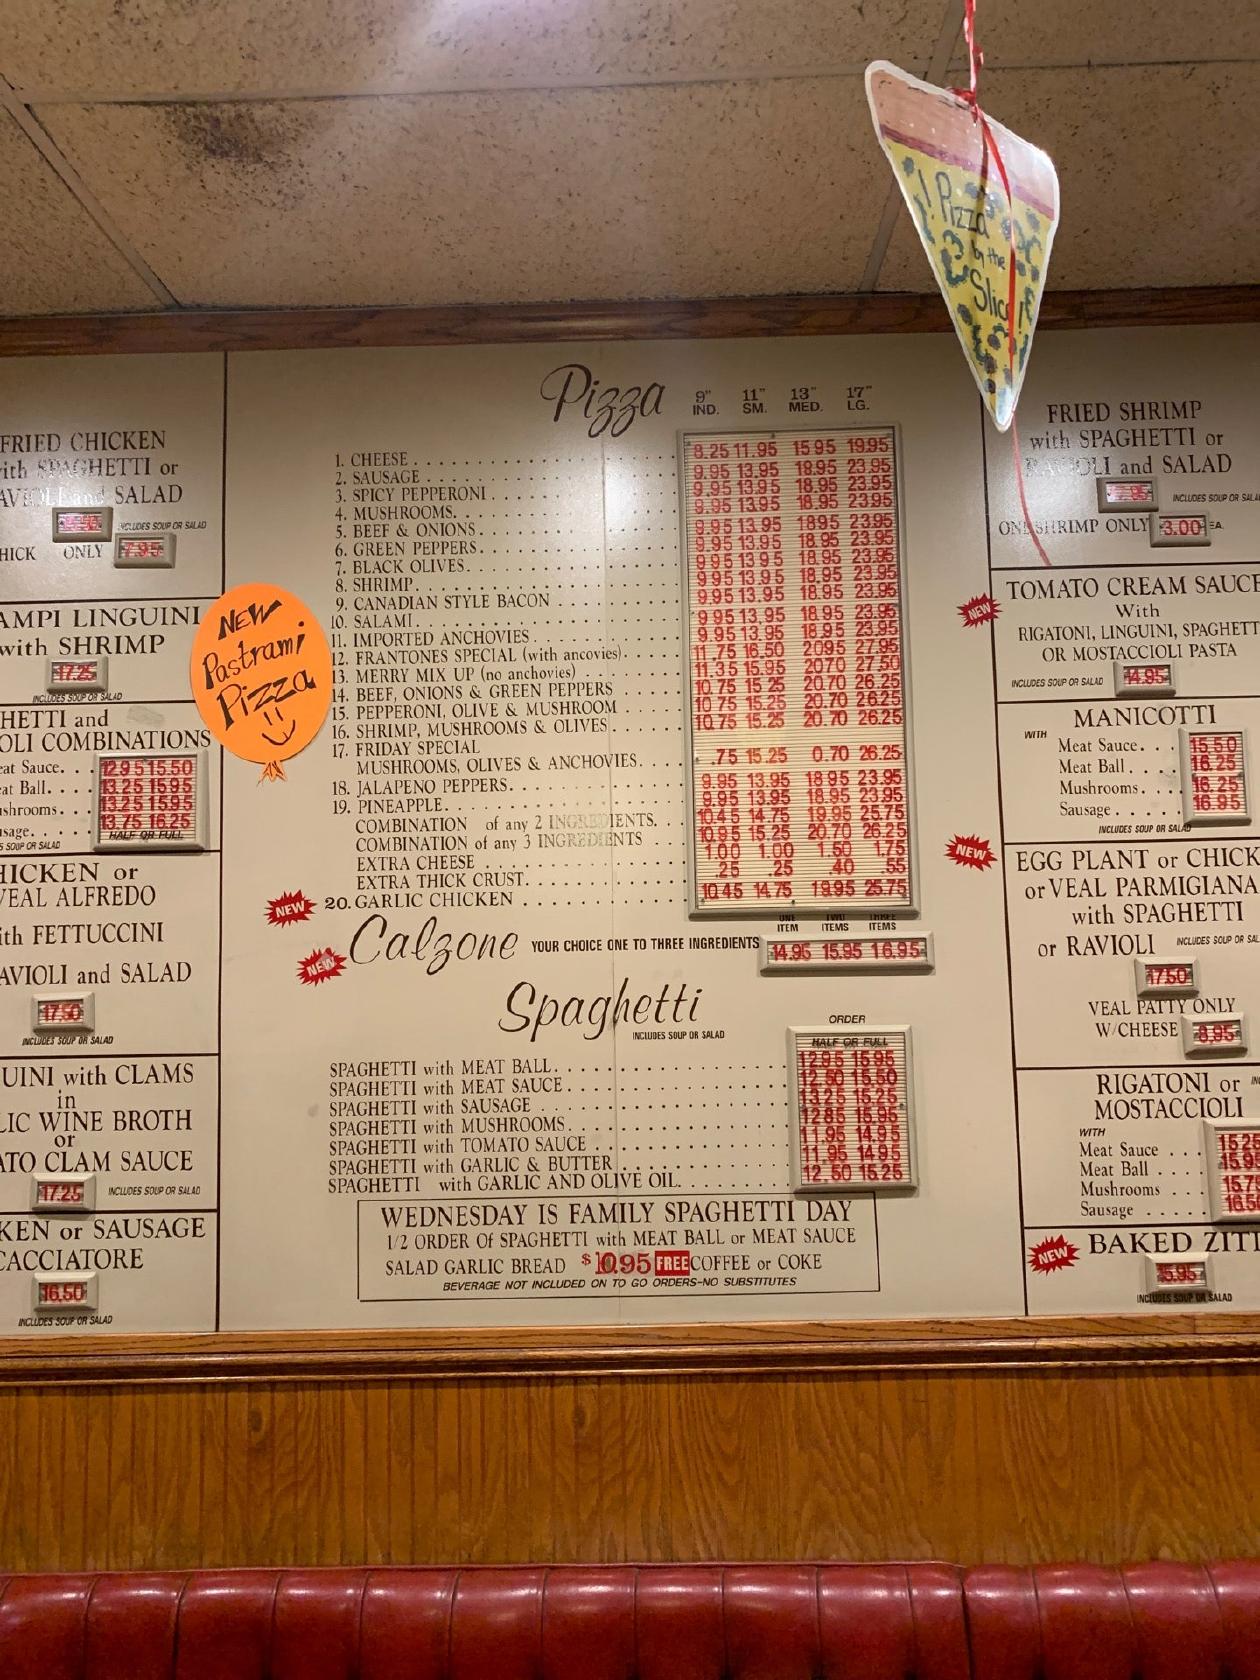 ! Pizza
by the
Slice!
FRIED CHICKEN
with SPAGHETTI or
RAVIOLI and SALAD
INCLUDES SOUP OR SALAD
HICK ONLY 7.95
AMPI LINGUINI
with SHRIMP
17.25
INCLUDES SOUP OR SALAD
HETTI and
OLI COMBINATIONS
eat Sauce. . . 12.95 15.50
eat Ball. . . . 13.25 15.95
ushrooms. . . 13.25 15.95
usage. . . . . 13.75 16.25
HALF OR FULL
S SOUP OR SALAD
HICKEN or
VEAL ALFREDO
ith FETTUCCINI
AVIOLI and SALAD
17.50
INCLUDES SOUP OR SALAD
UINI with CLAMS
in
LIC WINE BROTH
or
ATO CLAM SAUCE
17.25 INCLUDES SOUP OR SALAD
KEN or SAUSAGE
CACCIATORE
16.50
INCLUDES SOUP OR SALAD
NEW
Pastrami
Pizza
Pizza 9" IND. 11" SM. 13" MED. 17" LG.
1. CHEESE 8.25 11.95 15.95 19.95
2. SAUSAGE 9.95 13.95 18.95 23.95
3. SPICY PEPPERONI 9.95 13.95 18.95 23.95
4. MUSHROOMS 9.95 13.95 18.95 23.95
5. BEEF & ONIONS 9.95 13.95 18.95 23.95
6. GREEN PEPPERS 9.95 13.95 18.95 23.95
7. BLACK OLIVES 9.95 13.95 18.95 23.95
8. SHRIMP 9.95 13.95 18.95 23.95
9. CANADIAN STYLE BACON 9.95 13.95 18.95 23.95
10. SALAMI 9.95 13.95 18.95 23.95
11. IMPORTED ANCHOVIES 9.95 13.95 18.95 23.95
12. FRANTONES SPECIAL (with ancovies) 11.75 16.50 20.95 27.95
13. MERRY MIX UP (no anchovies) 11.35 15.95 20.70 27.50
14. BEEF, ONIONS & GREEN PEPPERS 10.75 15.25 20.70 26.25
15. PEPPERONI, OLIVE & MUSHROOM 10.75 15.25 20.70 26.25
16. SHRIMP, MUSHROOMS & OLIVES 10.75 15.25 20.70 26.25
17. FRIDAY SPECIAL
MUSHROOMS, OLIVES & ANCHOVIES .75 15.25 0.70 26.25
18. JALAPENO PEPPERS 9.95 13.95 18.95 23.95
19. PINEAPPLE 9.95 13.95 18.95 23.95
COMBINATION of any 2 INGREDIENTS 10.45 14.75 19.95 25.75
COMBINATION of any 3 INGREDIENTS 10.95 15.25 20.70 26.25
EXTRA CHEESE 1.00 1.00 1.50 1.75
EXTRA THICK CRUST .25 .25 .40 .55
NEW 20. GARLIC CHICKEN 10.45 14.75 19.95 25.75
ONE ITEM TWO ITEMS THREE ITEMS
NEW Calzone YOUR CHOICE ONE TO THREE INGREDIENTS 14.95 15.95 16.95
Spaghetti INCLUDES SOUP OR SALAD
ORDER
HALF OR FULL
SPAGHETTI with MEAT BALL 12.95 15.95
SPAGHETTI with MEAT SAUCE 12.50 15.50
SPAGHETTI with SAUSAGE 13.25 15.25
SPAGHETTI with MUSHROOMS 12.85 15.95
SPAGHETTI with TOMATO SAUCE 11.95 14.95
SPAGHETTI with GARLIC & BUTTER 11.95 14.95
SPAGHETTI with GARLIC AND OLIVE OIL 12.50 15.25
WEDNESDAY IS FAMILY SPAGHETTI DAY
1/2 ORDER OF SPAGHETTI with MEAT BALL or MEAT SAUCE
SALAD GARLIC BREAD $10.95 FREE COFFEE or COKE
BEVERAGE NOT INCLUDED ON TO GO ORDERS-NO SUBSTITUTES
FRIED SHRIMP
with SPAGHETTI or
RAVIOLI and SALAD
INCLUDES SOUP OR SALAD
ONE SHRIMP ONLY 3.00 EA.
NEW TOMATO CREAM SAUCE
With
RIGATONI, LINGUINI, SPAGHETT
OR MOSTACCIOLI PASTA
INCLUDES SOUP OR SALAD 14.95
MANICOTTI
WITH
Meat Sauce. . . 15.50
Meat Ball. . . . 16.25
Mushrooms. . . 16.25
Sausage . . . . 16.95
INCLUDES SOUP OR SALAD
NEW EGG PLANT or CHICK
or VEAL PARMIGIANA
with SPAGHETTI
or RAVIOLI INCLUDES SOUP OR SALA
17.50
VEAL PATTY ONLY
W/CHEESE 8.95
RIGATONI or
MOSTACCIOLI
WITH
Meat Sauce . . . 15.25
Meat Ball . . . . 15.95
Mushrooms . . . 15.75
Sausage . . . . 16.50
NEW BAKED ZITI
15.95
INCLUDES SOUP OR SALAD